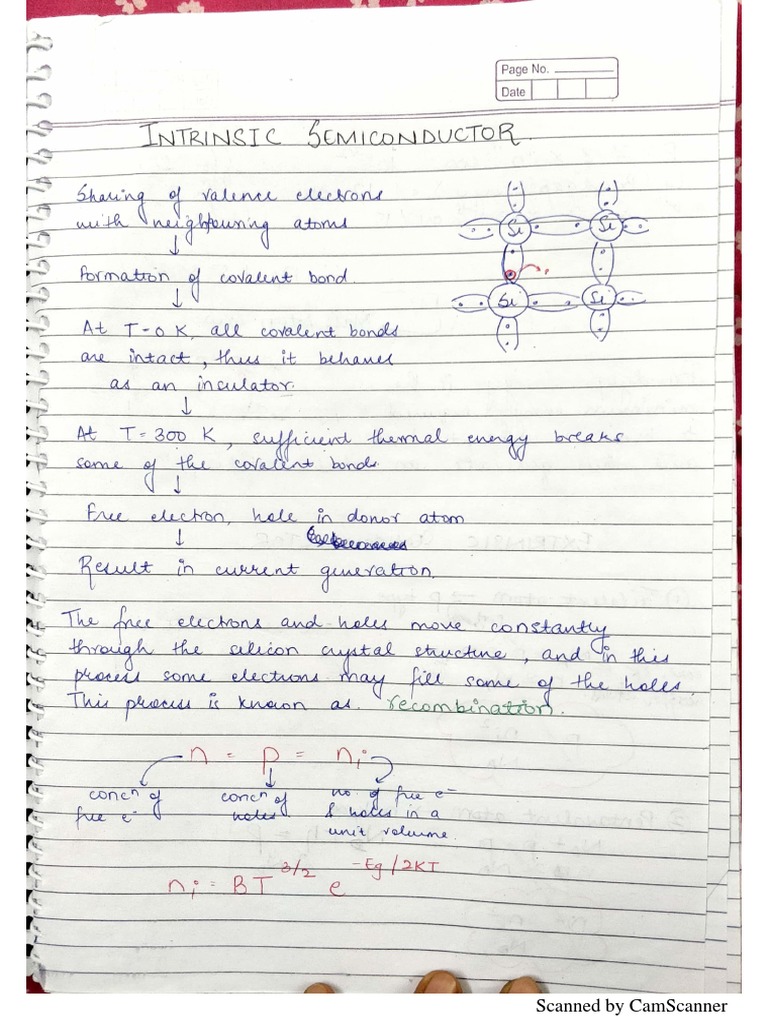 Page No.
Date
INTRINSIC SEMICONDUCTOR.
Sharing of valence electrons
with neighbouring atoms
↓
Formation of covalent bond.
↓
At T = 0 K, all covalent bonds
are intact, thus it behaves
as an inculator.
↓
At T = 300 K, sufficient thermal energy breaks
some of the covalent bonds.
↓
Free electron, hole in donor atom
↓
Result in current generation.
Si Si
Si Si
The free electrons and holes move constantly
through the silicon crystal structure, and in this
process some electrons may fill some of the holes.
This process is known as recombination.
n = p = ni
concⁿ of free e⁻
concⁿ of holes
no. of free e⁻ & holes in a unit volume.
ni = BT^3/2 e^-Eg/2KT
Scanned by CamScanner